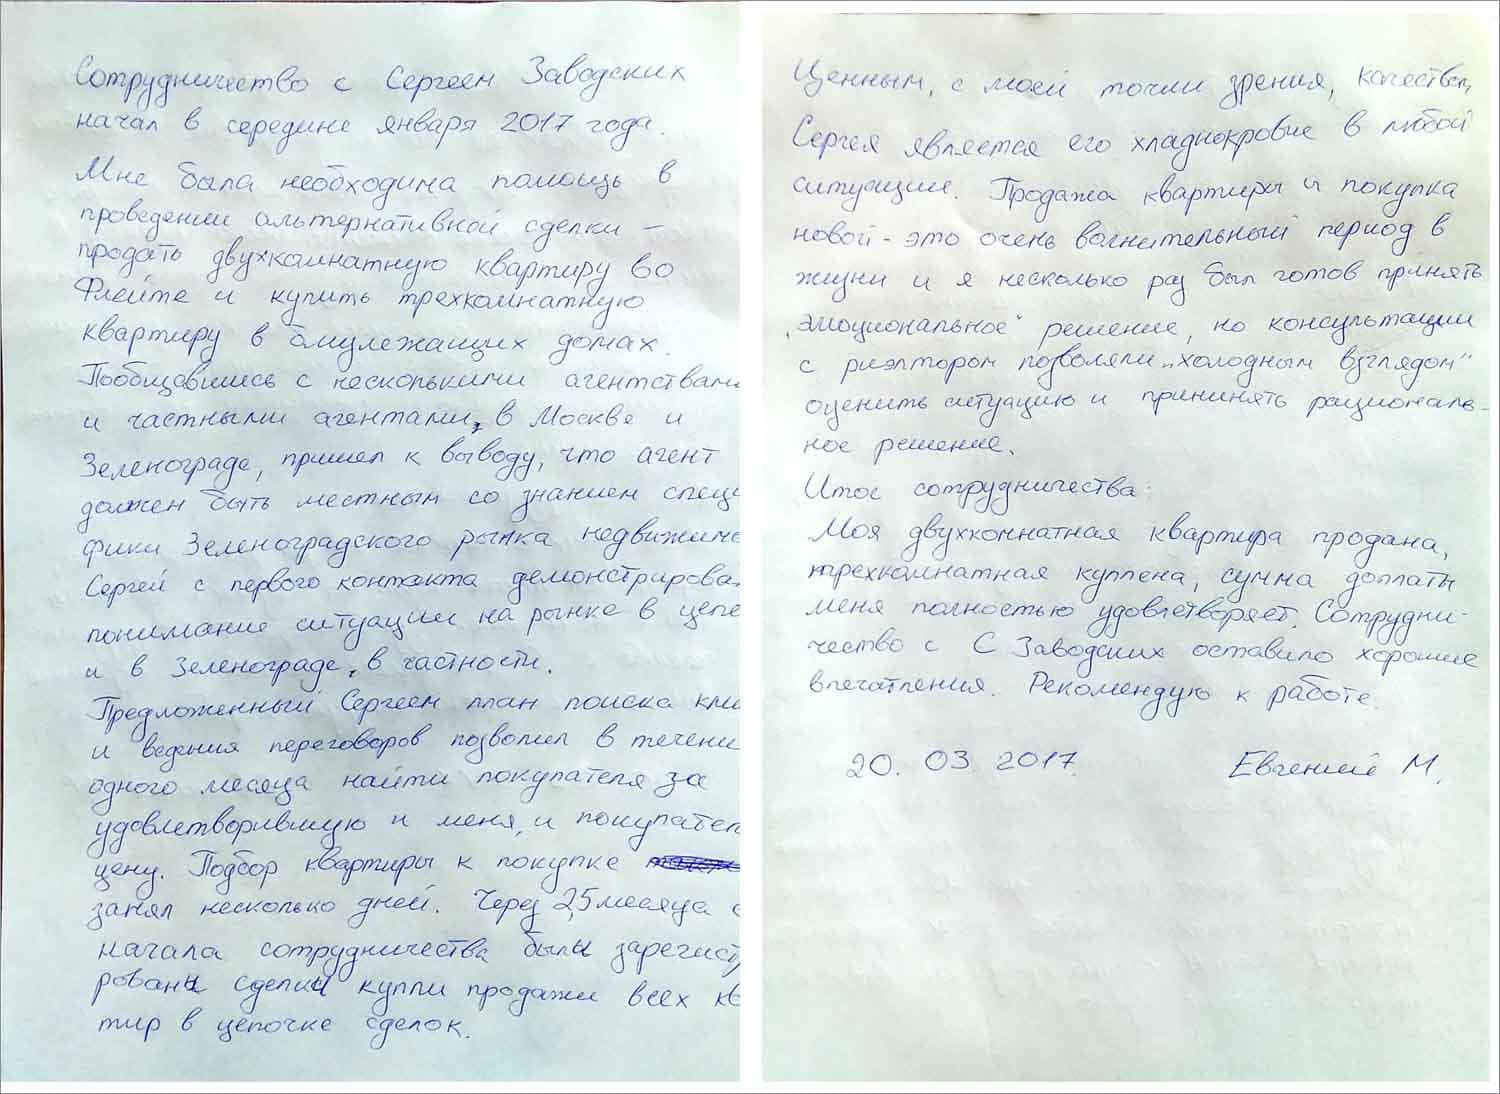 Сотрудничество с Сергеем Заводских
начал в середине января 2017 года.
Мне была необходима помощь в
проведении альтернативной сделки –
продать двухкомнатную квартиру во
Флейте и купить трехкомнатную
квартиру в близлежащих домах.
Пообщавшись с несколькими агентствами
и частными агентами, в Москве и
Зеленограде, пришел к выводу, что агент
должен быть местным со знанием специ
фики Зеленоградского рынка недвижимо
Сергей с первого контакта демонстрирова
понимание ситуации на рынке в цело
и в Зеленограде, в частности.
Предложенный Сергеем план поиска кли
и ведения переговоров позволил в течени
одного месяца найти покупателя за
удовлетворившую и меня, и покупател
цену. Подбор квартиры к покупке
занял несколько дней. Через 2,5 месяца с
начала сотрудничества были зарегист
рованы сделки купли продажи всех кв
тир в цепочке сделок.
Ценным, с моей точки зрения, качеством
Сергея является его хладнокровие в любой
ситуации. Продажа квартиры и покупка
новой - это очень волнительный период в
жизни и я несколько раз был готов принять
„эмоциональное“ решение, но консультации
с риэлтором позволяли „холодным взглядом“
оценить ситуацию и прининять рациональ-
ное решение.
Итог сотрудничества:
Моя двухкомнатная квартира продана,
трехкомнатная куплена, сумма доплаты
меня полностью удовлетворяет. Сотрудни-
чество с С Заводских оставило хорошие
впечатления. Рекомендую к работе.
20. 03. 2017. Евгений М.